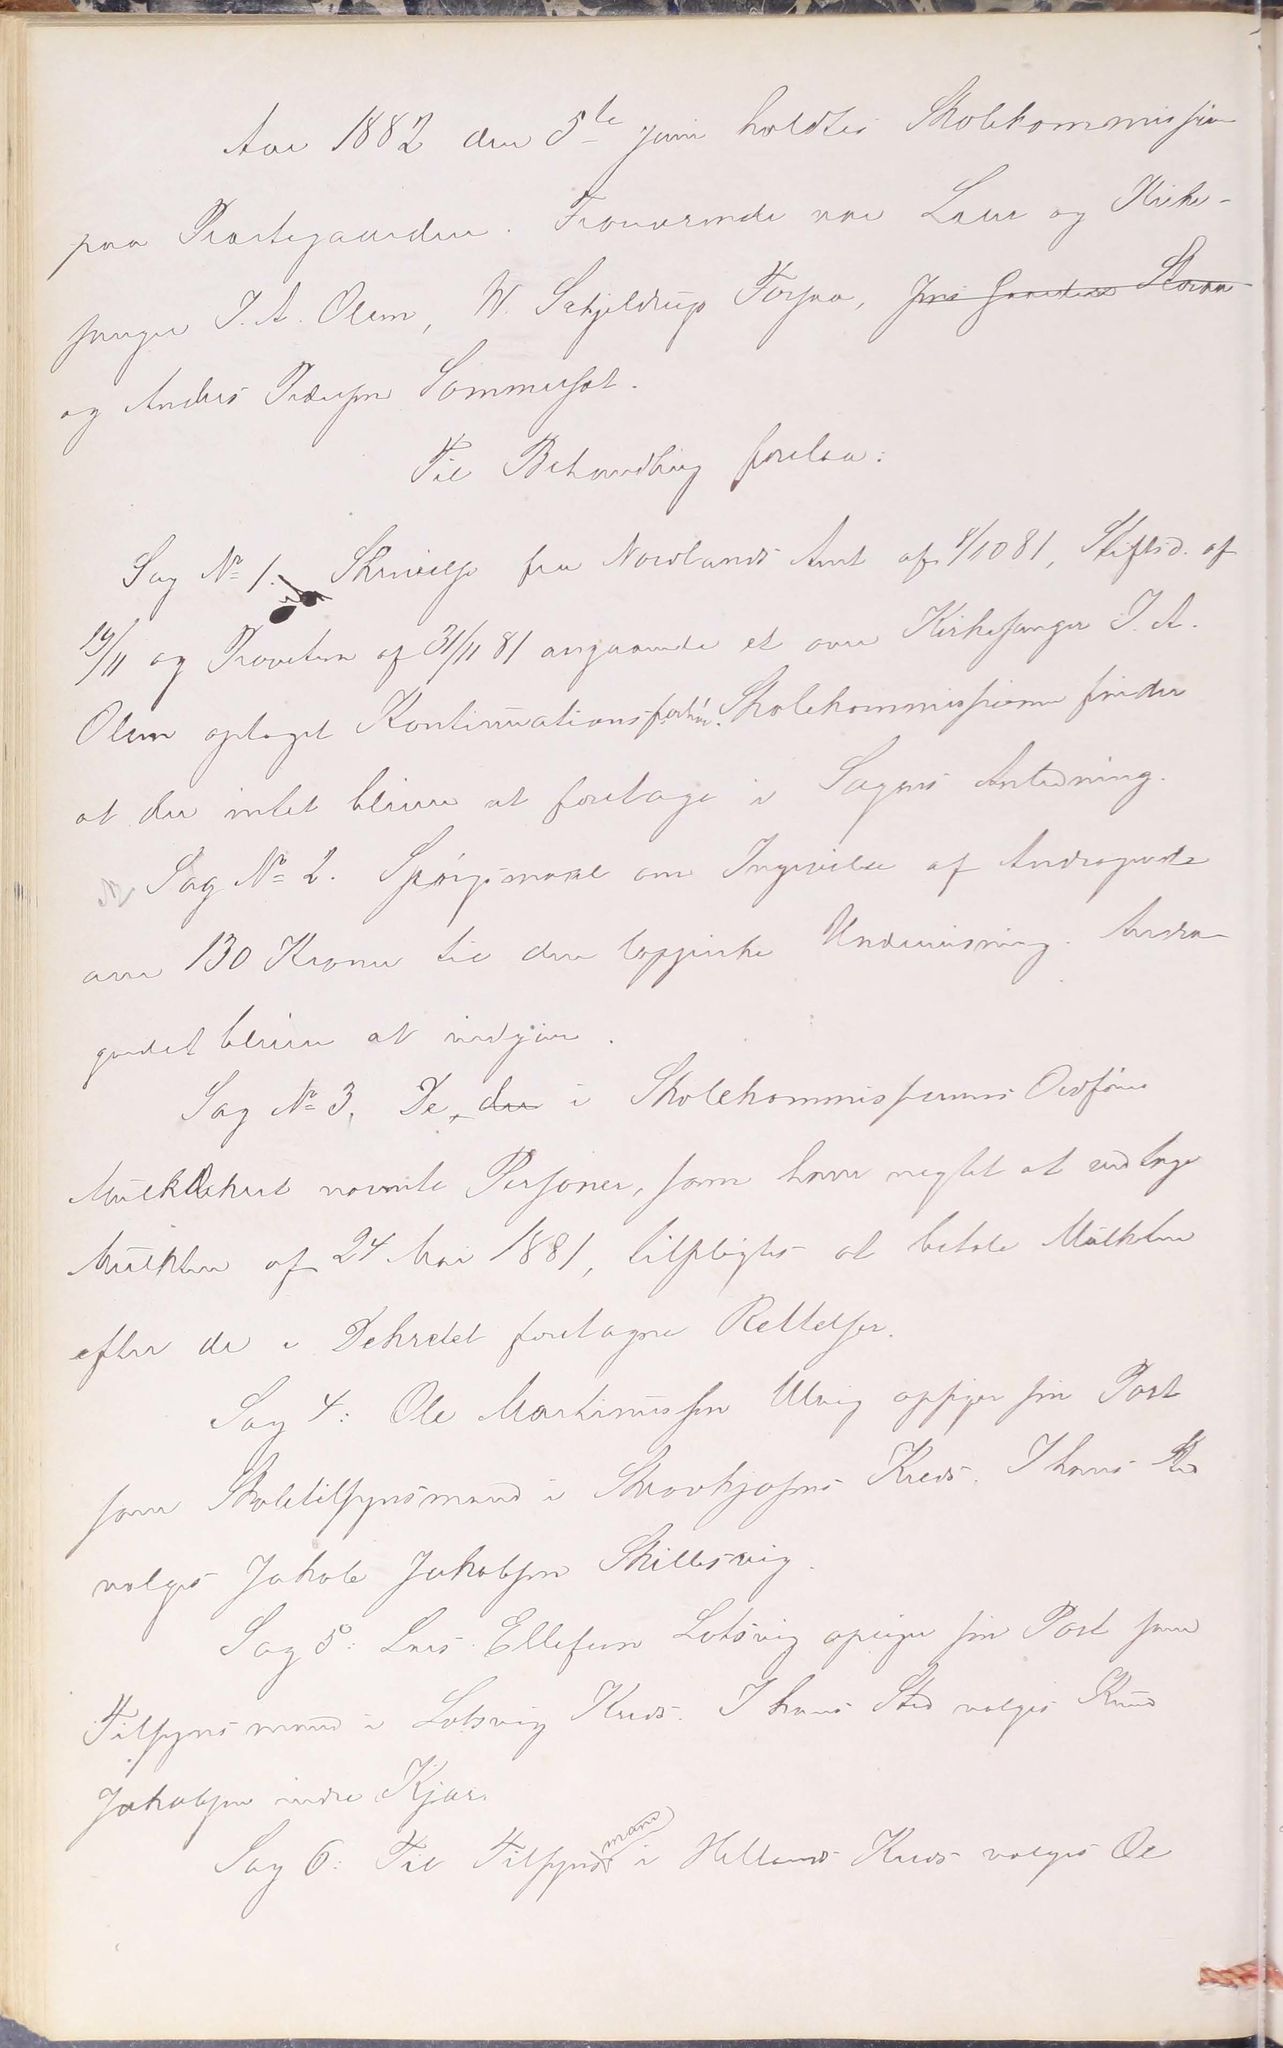 Aar 1882 den 5te Juni holdtes Skolekommission
paa Præstegaarden. Fraværende var Lærer og Kirke-
sanger J. A. Olsen, W. Schjeldrup Forsaa, Jens Storaa
og Anders Pedersen Sommerset.
Til Behandling forelaa:
Sag No 1. Skrivelse fra Nordlands Amt af 8/10 81, Stiftsd. af
29/11 og Provsten af 31/11 81 angaaende et over Kirkesanger J. A.
Olsen optaget Kontinuationsforhør. Skolekommissionen finder
at der intet bliver at foretage i Sagens Anledning.
Sag No 2. Spørgsmaal om Ingivelse af Andragende
om 130 Kroner til den lappiske Undervisning. Andra-
gendet bliver at indgive.
Sag No 3. De der i Skolekommissionens Ordfører
Mulktdekret nævnte Personer, som have negtet at udlægge
Mulkten af 24 Mai 1881, tilpligtes at betale Mulkten
efter de i Dekretet foretagne Rettelser.
Sag 4: Ole Martinussen Ulvig opsiger sin Post
som Skoletilsynsmand i Skrovkjosens Kreds. I hans Sted
valges Jakob Jakobsen Skillesvig.
Sag 5: Lars Ellefsen Lotsvig opsiger sin Post som
Tilsynsmand i Lotsvig Kreds. I hans Sted valges Knud
Jakobsen indre Kjær.
Sag 6: Til Tilsynsmand i Hellands Kreds valges Ole